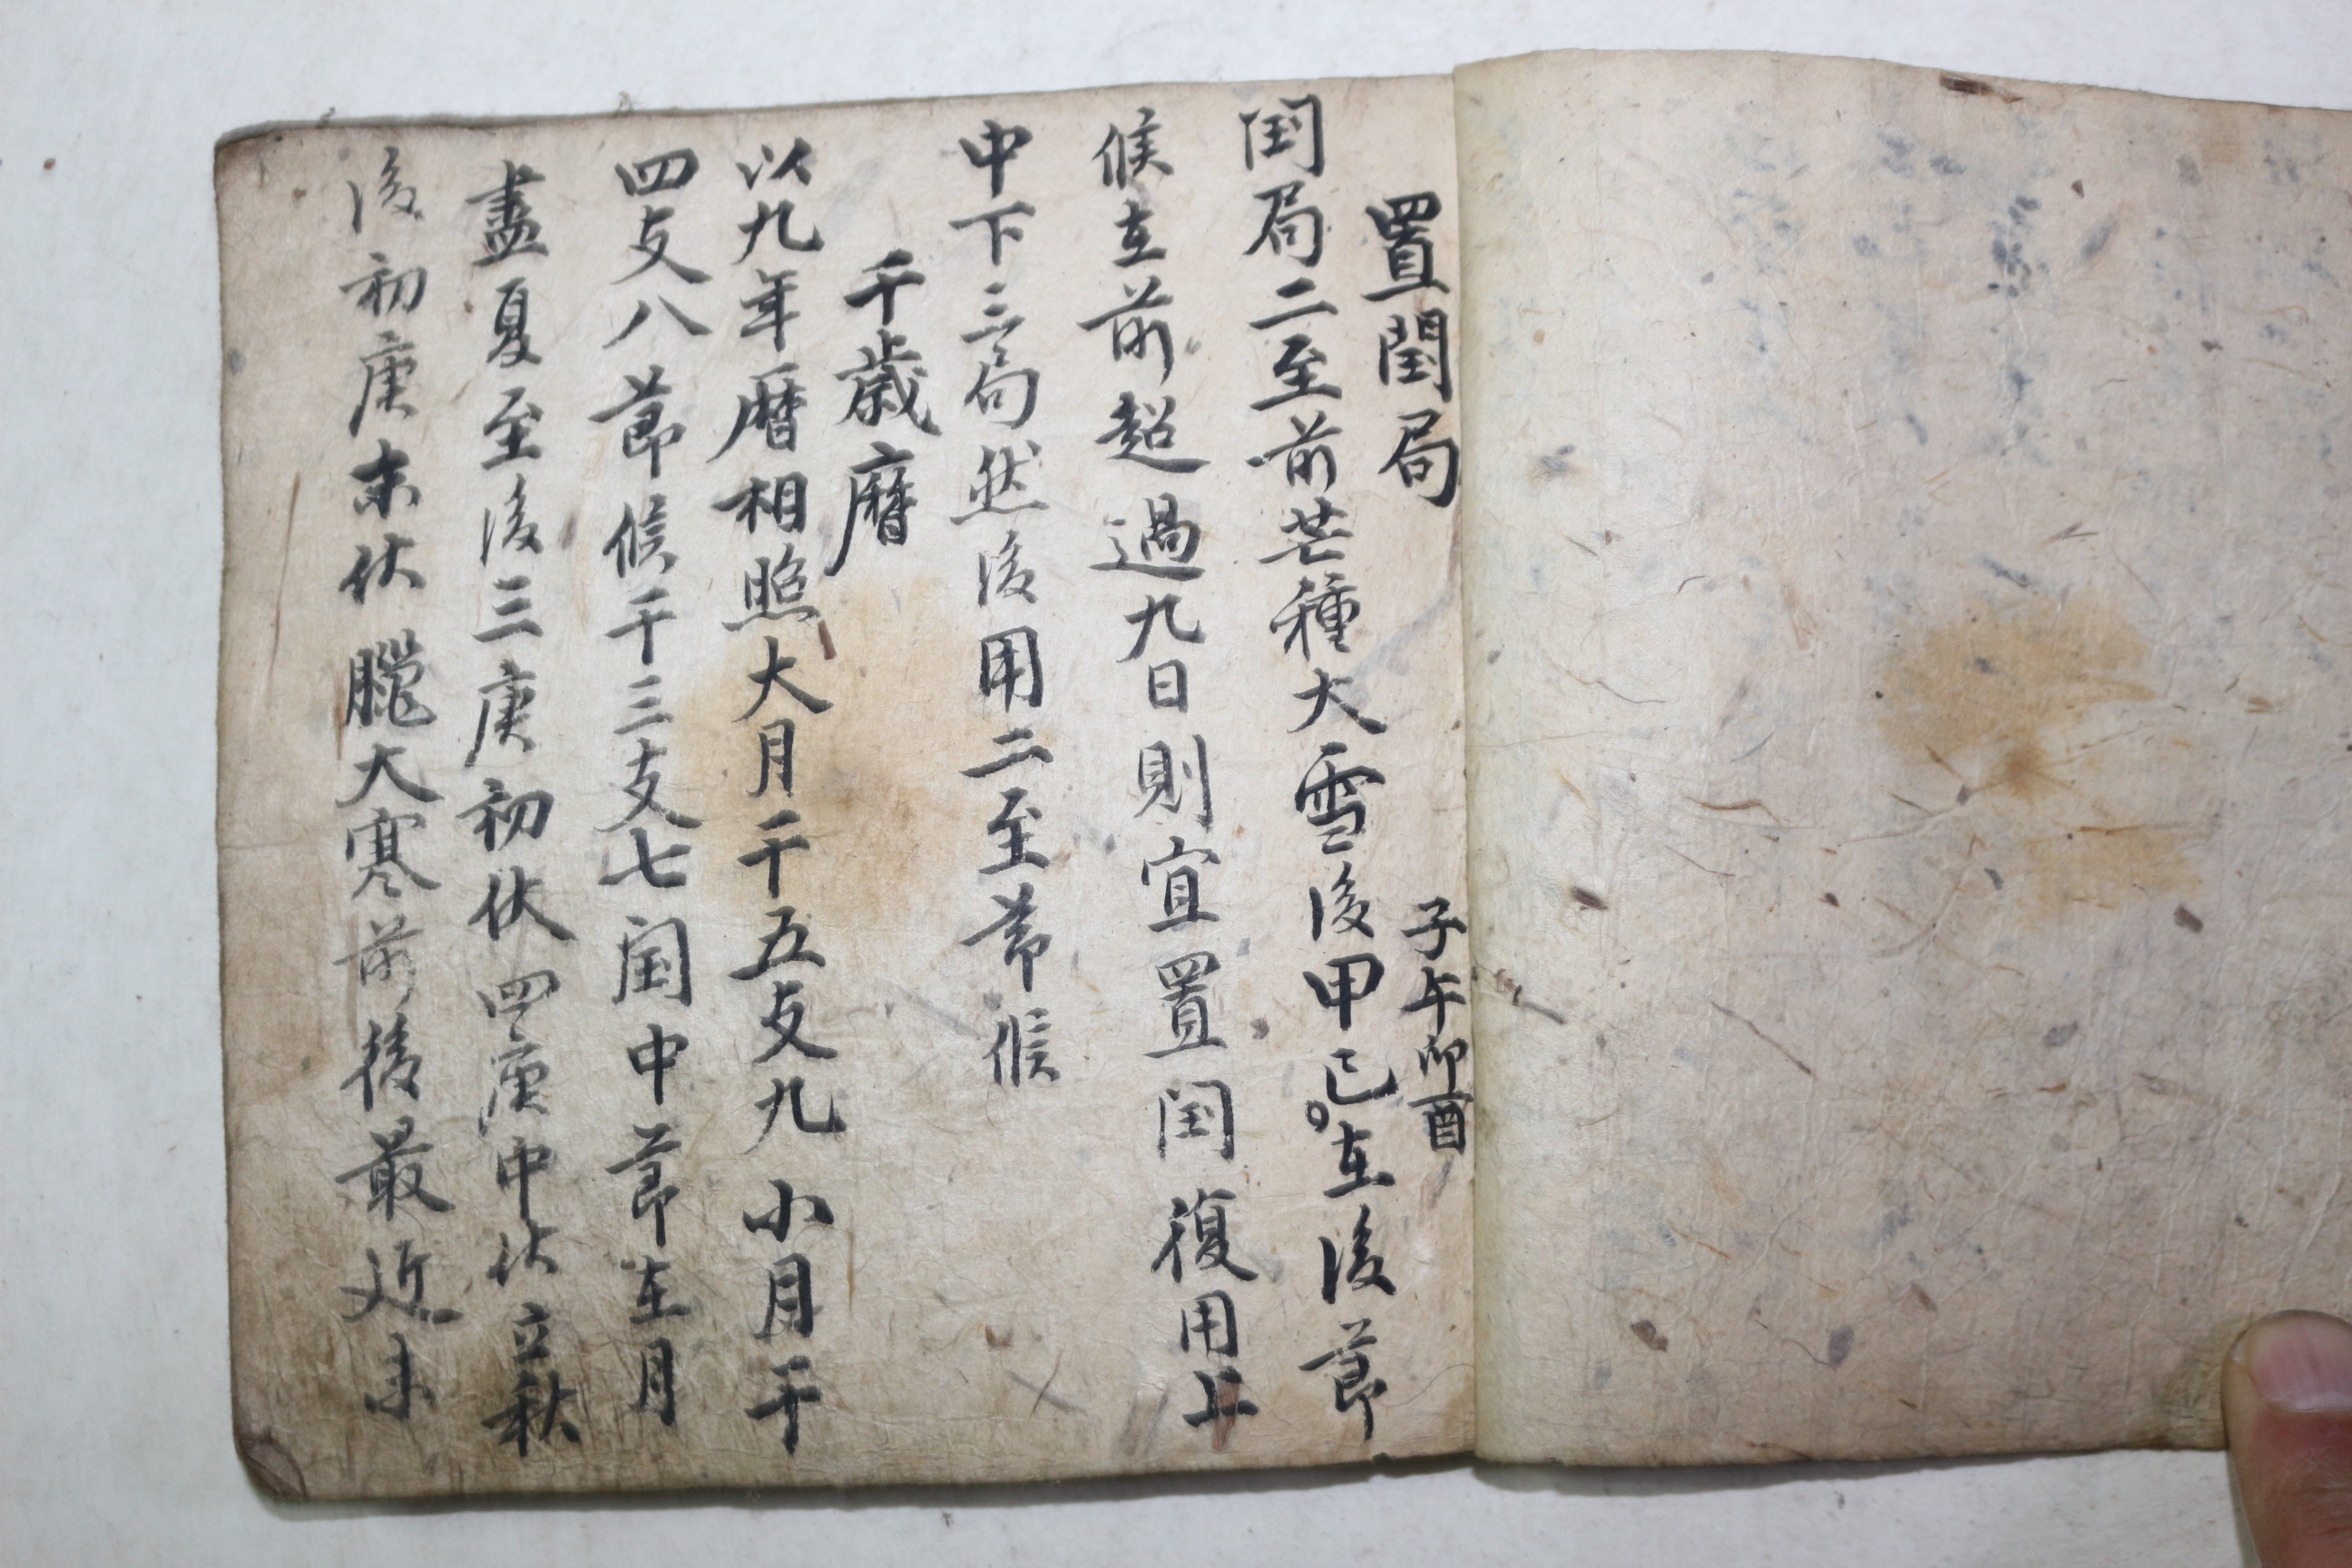 置閏局
子午卯酉
閏局二至前芒種大雪後甲己在後節
候在前超過九日則宜置閏復用上
中下三局然後用二至節候
千歲曆
以九年曆相照大月干五支九小月干
四支八節候干三支七閏中節在月
盡夏至後三庚初伏四庚中伏立秋
後初庚末伏臘大寒前後最近未